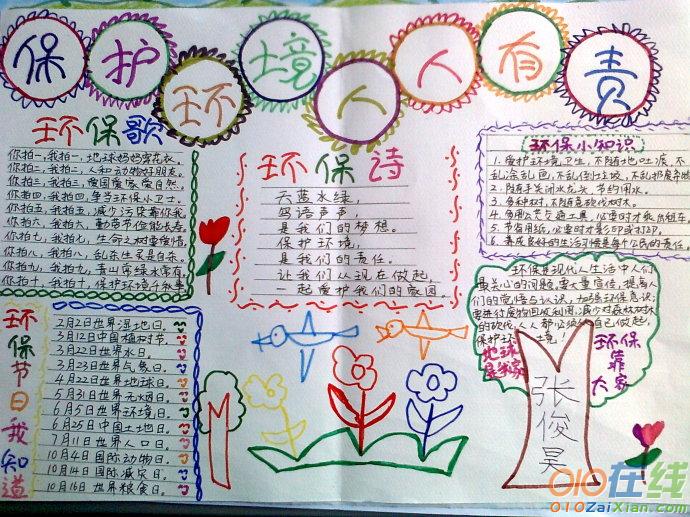 保护环境人人有责
环保歌
你拍一,我拍一,地球妈妈穿花衣。
你拍二,我拍二,人和动物好朋友。
你拍三,我拍三,爱国爱家爱自然。
你拍四,我拍四,争当环保小卫士。
你拍五,我拍五,减少污染靠你我。
你拍六,我拍六,勤劳节俭能长寿。
你拍七,我拍七,生命之树要爱惜。
你拍八,我拍八,乱杀生灵是自杀。
你拍九,我拍九,青山常绿水常有。
你拍十,我拍十,保护环境
环保诗
天蓝水绿,
鸟语声声,
是我们的梦想。
保护环境,
是我们的责任。
让我们从现在做起,
一起爱护我们的家园。
环保小知识
1.爱护环境卫生,不随地吐痰,不
乱涂乱画,不乱倒垃圾,不乱扔废弃物
2.随手关闭水龙头,节约用水。
3.多种树,不随意砍伐树木。
4.多用公共交通工具,必要时才乘出租车。
5.节省用纸,必要时才影印或打印。
6.养成良好的生活习惯是每个公民的责任。
环保是现代人生活中人们
最关心的问题,要大量宣传,提高人
们的觉悟与认识,加强环保意识;
要进行废物回收利用,减少对森林树木
的砍伐,人人都必须从自己做起,
保护环境
地球
是我家
环保
靠
大家
张俊昊
环保节日我知道
2月2日世界湿地日。
3月12日中国植树节。
3月22日世界水日。
3月23日世界气象日。
4月22日世界地球日。
5月31日世界无烟日。
6月5日世界环境日。
6月25日中国土地日。
7月11日世界人口日。
10月4日国际动物日。
10月14日国际减灾日。
10月16日世界粮食日。
010在线
010ZaiXian.com